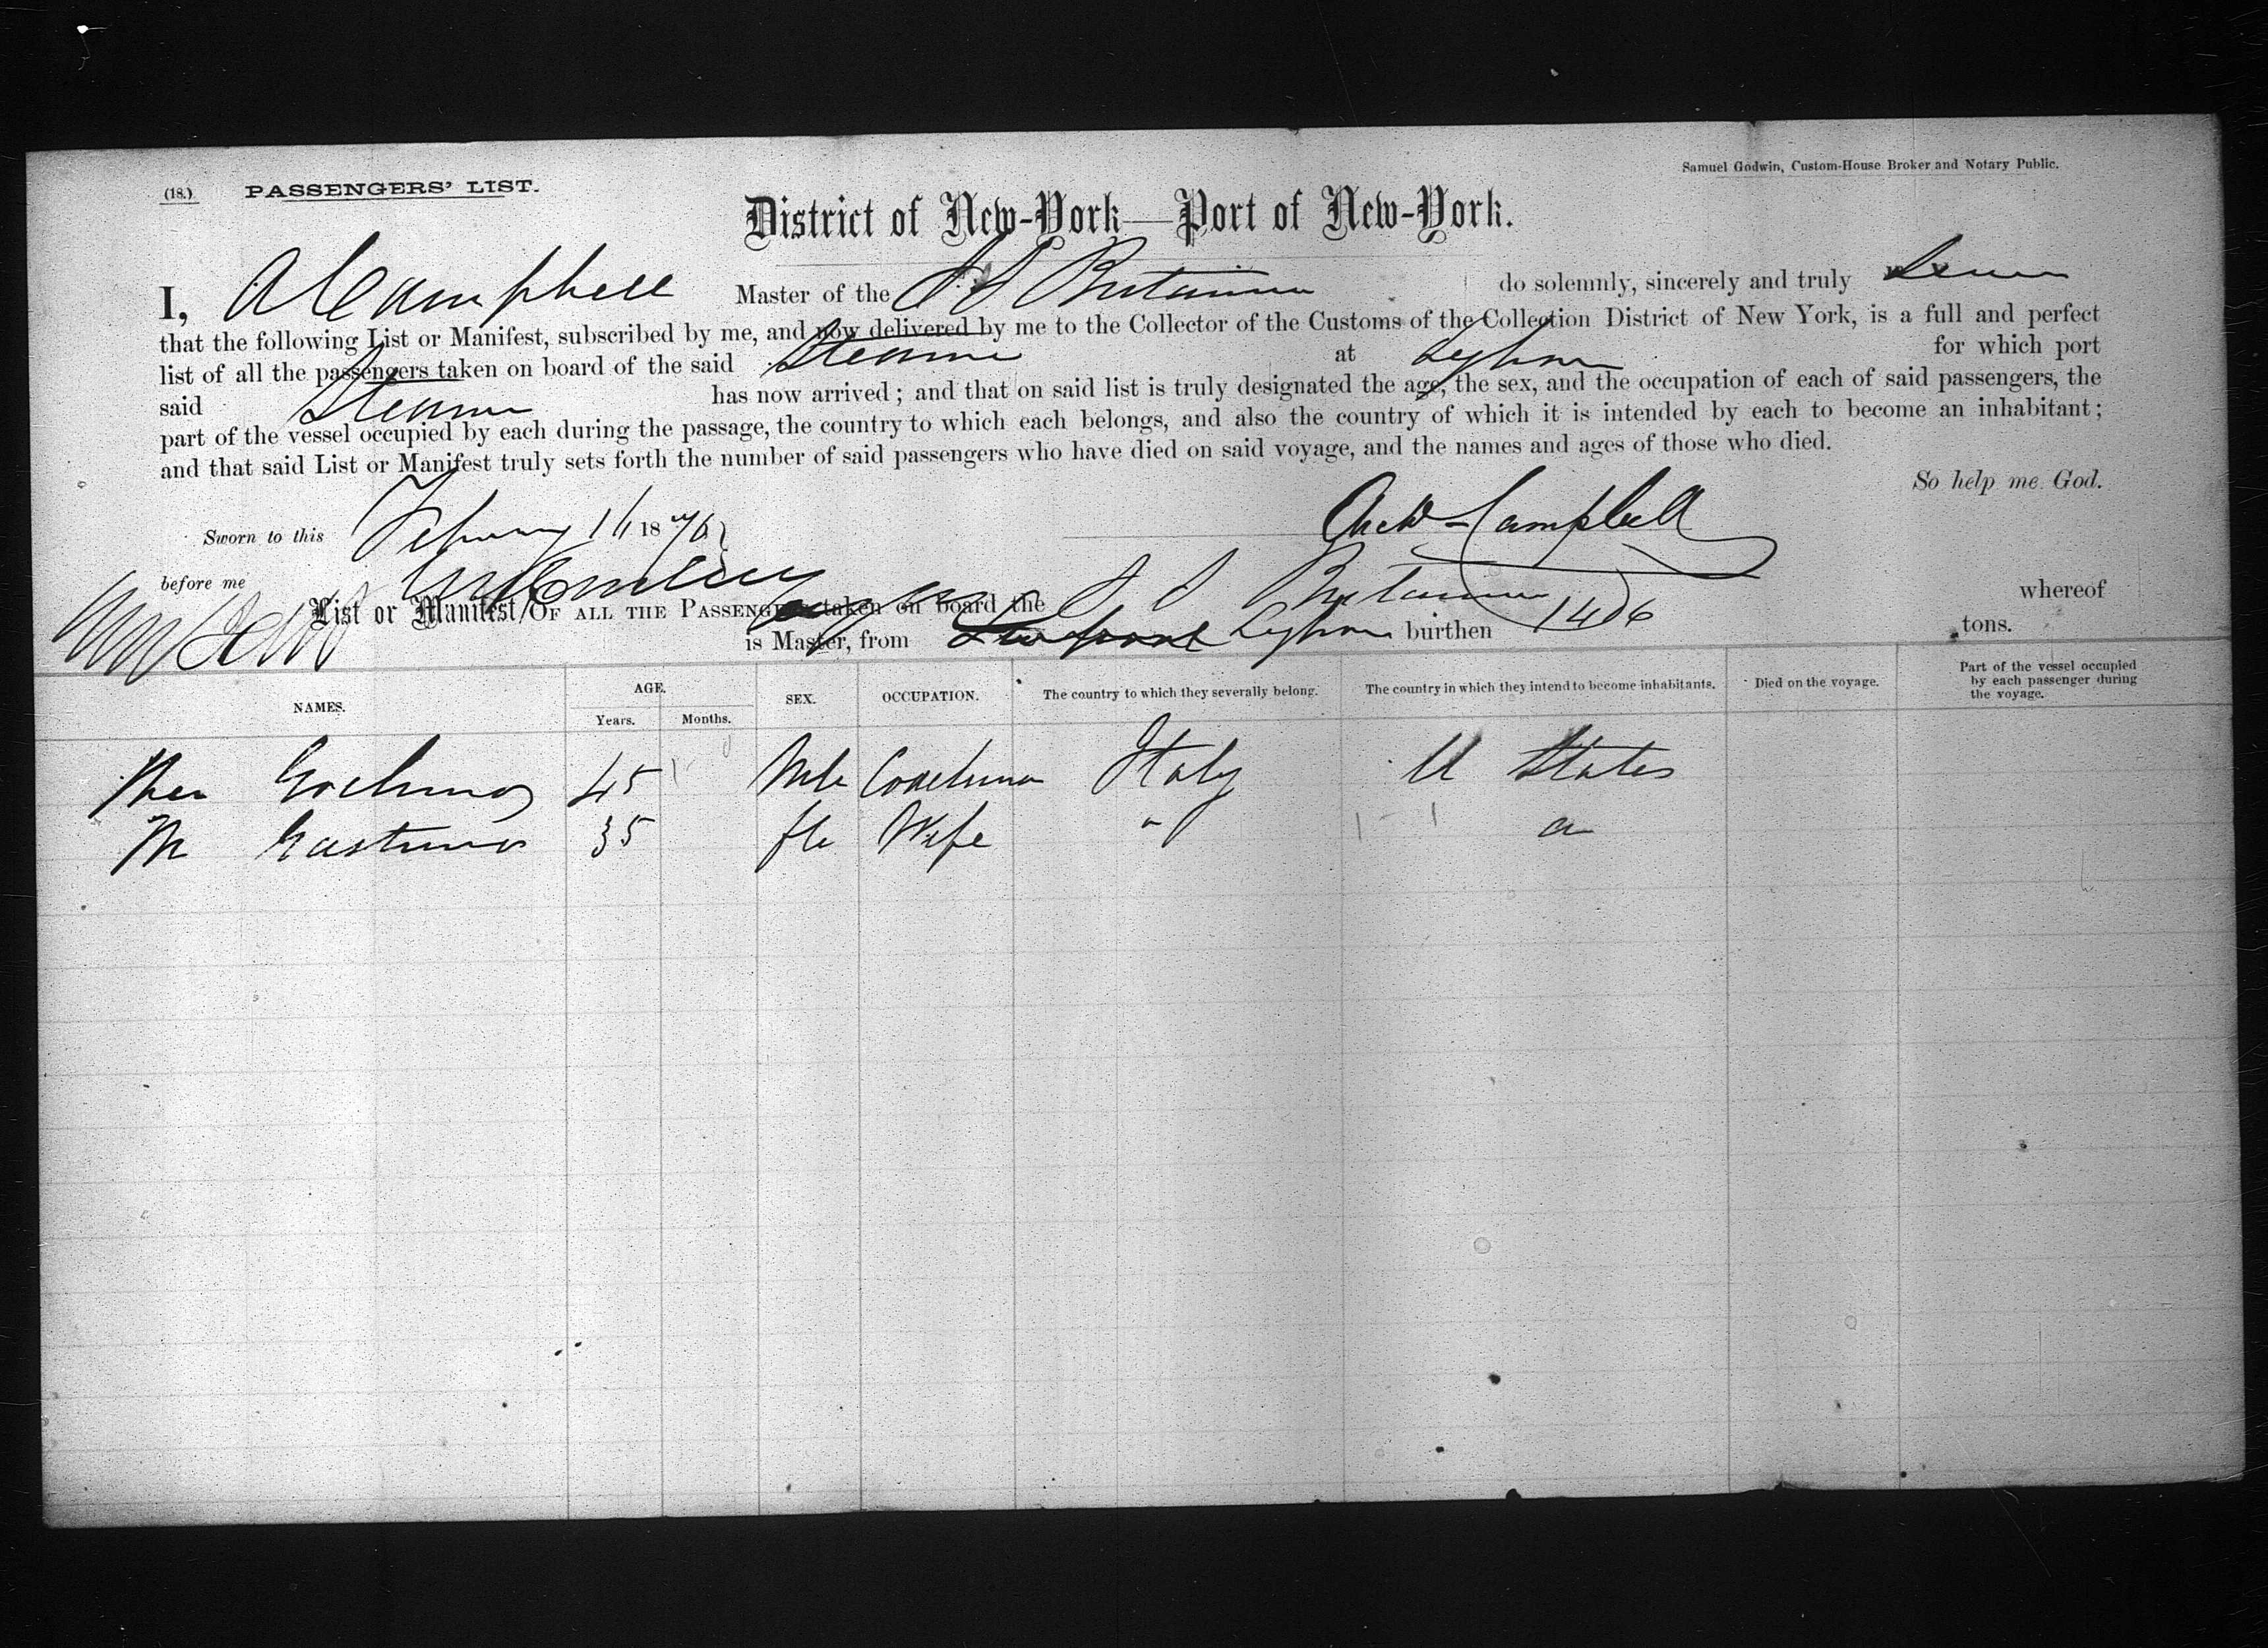 (18.) PASSENGERS' LIST.
Samuel Godwin, Custom-House Broker and Notary Public.
District of New-York—Port of New-York.
I, A Campbell Master of the SS Britannia do solemnly, sincerely and truly Swear
that the following List or Manifest, subscribed by me, and now delivered by me to the Collector of the Customs of the Collection District of New York, is a full and perfect
list of all the passengers taken on board of the said Steamer at for which port
said Steamer has now arrived; and that on said list is truly designated the age, the sex, and the occupation of each of said passengers, the
part of the vessel occupied by each during the passage, the country to which each belongs, and also the country of which it is intended by each to become an inhabitant;
and that said List or Manifest truly sets forth the number of said passengers who have died on said voyage, and the names and ages of those who died.
So help me God.
Sworn to this 1876 Campbell
before me
List or Manifest OF ALL THE PASSENGERS taken on board the S S Britannia whereof
is Master, from burthen 1406 tons.
NAMES. AGE. Years. Months. SEX. OCCUPATION. The country to which they severally belong. The country in which they intend to become inhabitants. Died on the voyage. Part of the vessel occupied by each passenger during the voyage.
45 Mle Coachman Italy U States
M 35 fle Wife "